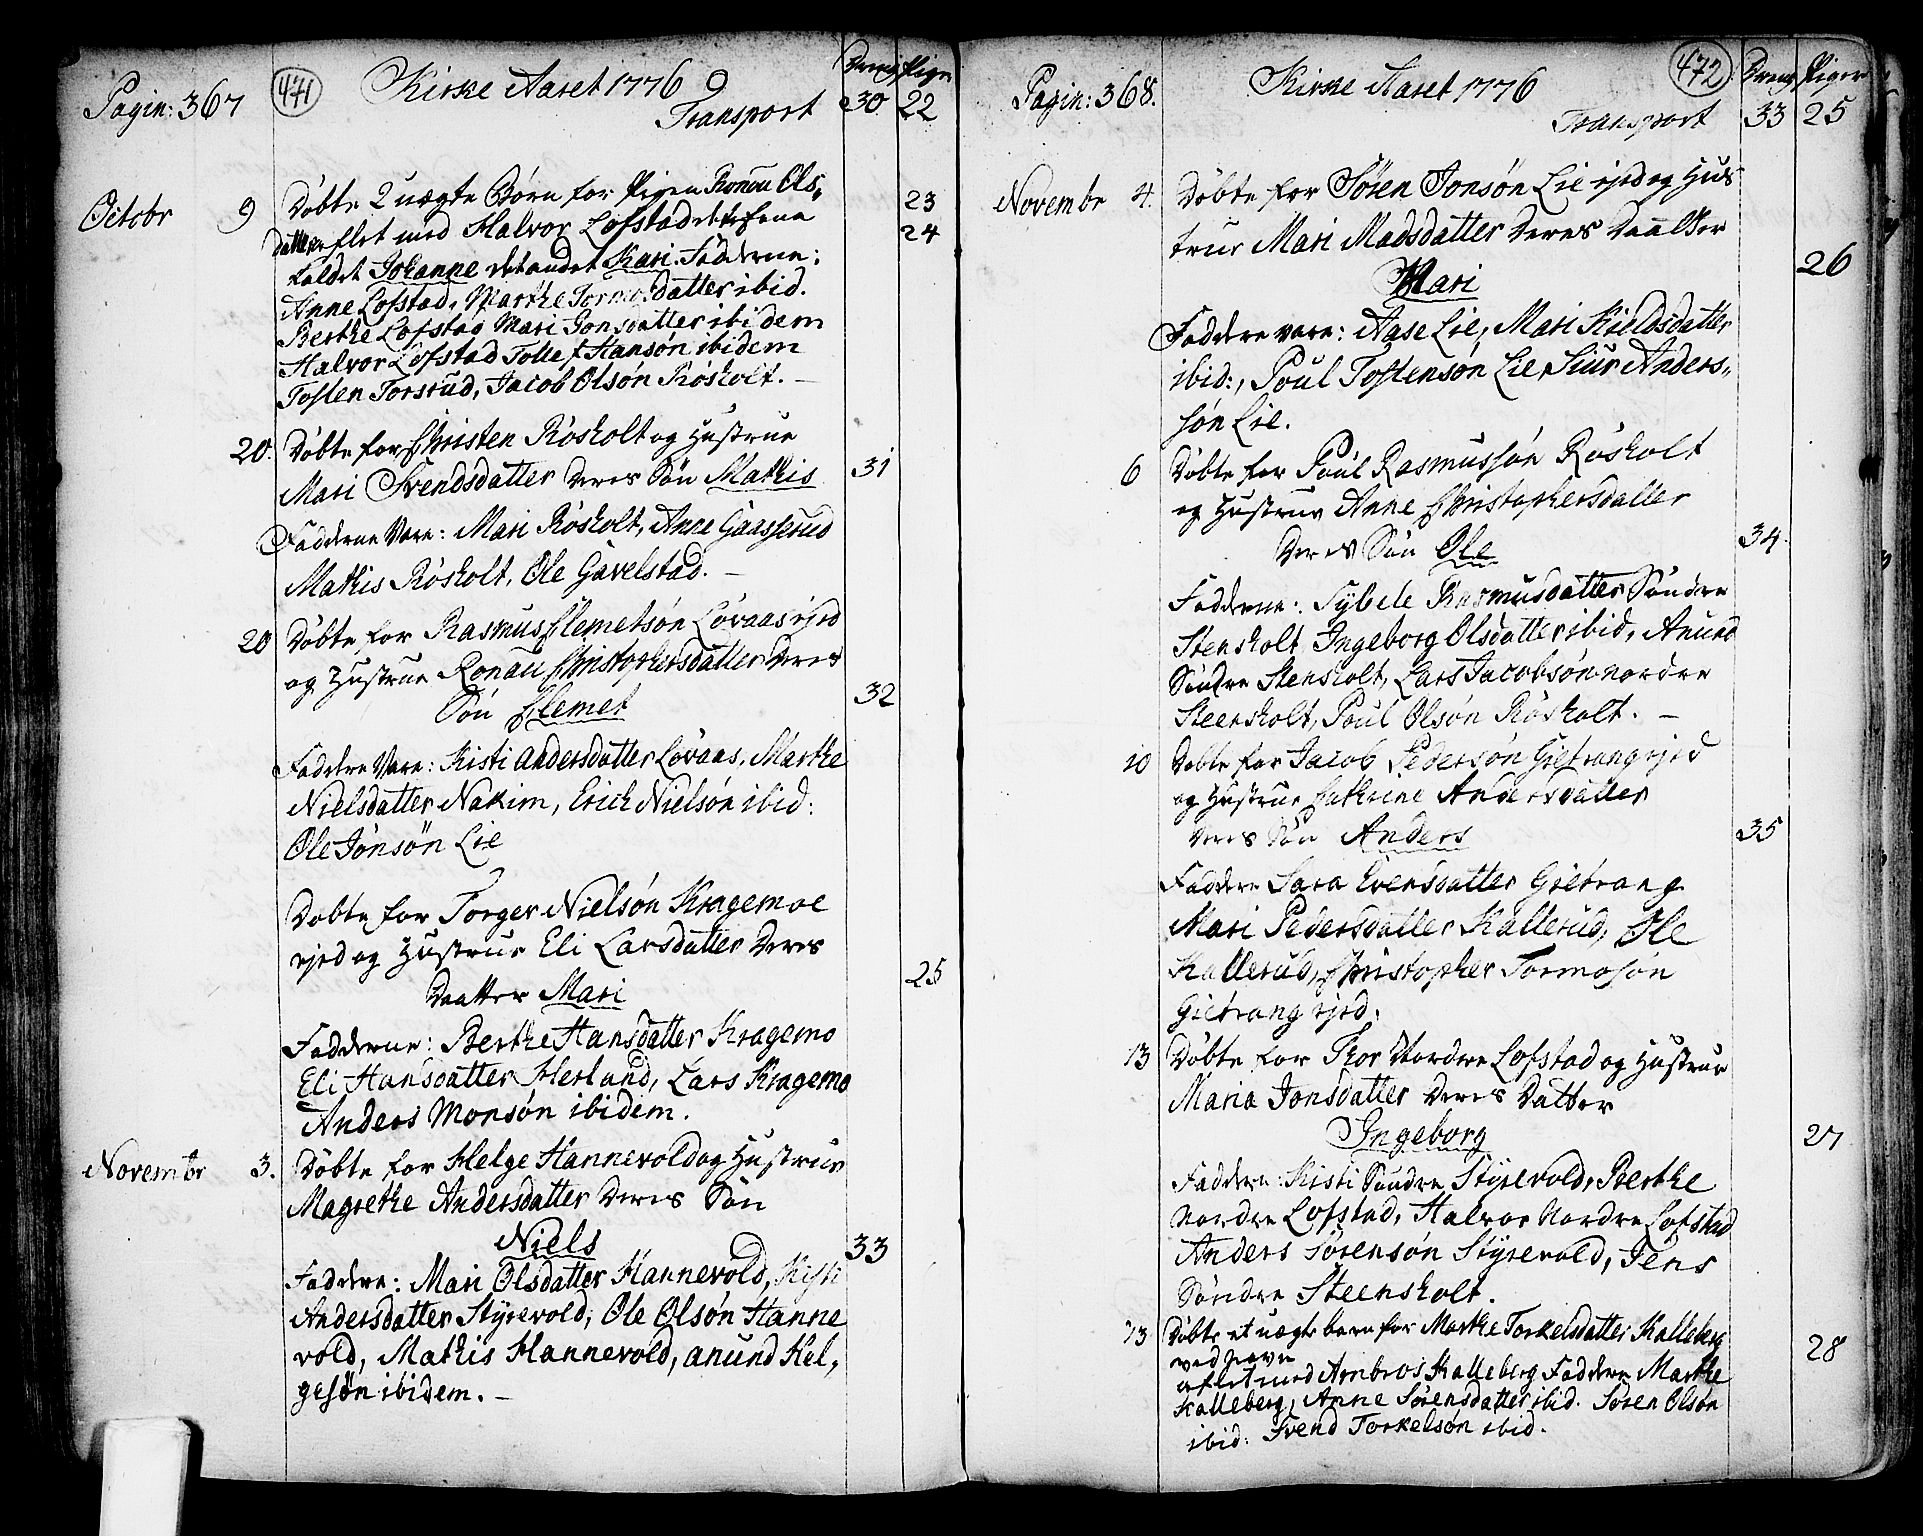 Pagin: 367
471
Kirke Aaret 1776
Dreng Piger
Transport 30 22
Octobr 9 Døbte 2 uægte Børn for Pigen Ronau Ols-
datter aflet med Halvor Lofstad det eene
kaldet Johanne det andet Kari. Fadderne:
23
24
Anne Lofstad, Marthe Tormosdatter ibid.
Berthe Lofstad Mari Jonsdatter ibidem
Halvor Lofstad Tollef Hansøn ibidem
Tosten Torsrud, Jacob Olsøn Røsholt. –
20. Døbte for Christen Røsholt og Hustrue
Mari Svendsdatter Deres Søn Mathis 31
Fadderne Vare: Mari Røsholt, Anne Gaasserud
Mathis Røsholt, Ole Gavelstad. –
20 Døbte for Rasmus Clemetsøn Løvaas ejed
og Hustrue Ronau Christophersdatter Deres
Søn Clemet 32
Faddere Vare: Kisti Andersdatter Løvaas, Marthe
Nielsdatter Nakim, Erich Nielsøn ibid:
Ole Jonsøn Lie
Døbte for Torger Nielsøn Kragemoe
ejed og Hustrue Eli Larsdatter Deres
Daatter Mari 25
Fadderne: Berthe Hansdatter Kragemo
Eli Hansdatter Herland, Lars Kragemo
Anders Monsøn ibidem.
Novembr 3. Døbte for Helge Hannevold og Hustrue
Magrethe Andersdatter Deres Søn
Niels 33
Faddere: Mari Olsdatter Hannevold, Kisti
Andersdatter Styrevold, Ole Olsøn Hanne
vold, Mathis Hannevold, Anund Hel-
gesøn ibidem. –
Pagin: 368.
Kirke Aaret 1776
472
Dreng Piger
Transport 33 25
Novembr 4. Døbte for Søren Jonsøn Lie ejed og Hus
true Mari Madsdatter Deres Daatter
Mari 26
Faddere vare: Aase Lie, Mari Kieldsdatter
ibid:, Poul Tostensøn Lie, Siur Anders-
søn Lie.
6 Døbte for Poul Rasmussøn Røsholt
og Hustrue Anne Christophersdatter
Deres Søn Ole 34.
Fadderne: Sybele Rasmusdatter Søndre
Stensholt, Ingeborg Olsdatter ibid, Anund
Søndre Stensholt, Lars Jacobsøn nordre
Steensholt, Poul Olsøn Røsholt. –
10 Døbte for Jacob Pedersøn Gietrang ejed
og Hustrue Cathrine Andersdatter
Deres Søn Anders 35
Faddere Sara Evensdatter Gietrang
Mari Pedersdatter Kallerud, Ole
Kallerud, Christopher Tormosøn
Gietrang ejed.
13 Døbte for Thor Nordre Lofstad og Hustrue
Maria Jonsdatter Deres Datter
Ingeborg 27
Faddere: Kisti Søndre Styrevold, Berthe
Nordre Lofstad, Halvor Nordre Lofstad
Anders Sørensøn Styrevold, Jens
Søndre Steensholt.
13 Døbte et uægte barn for Marthe Torkelsdatter Kalleberg 28
ved Navn
aflet med Ambros Kalleberg Faddere Marthe
Kalleberg, Anne Sørensdatter ibid. Søren Olsøn
ibid: Svend Torkelsøn ibid.